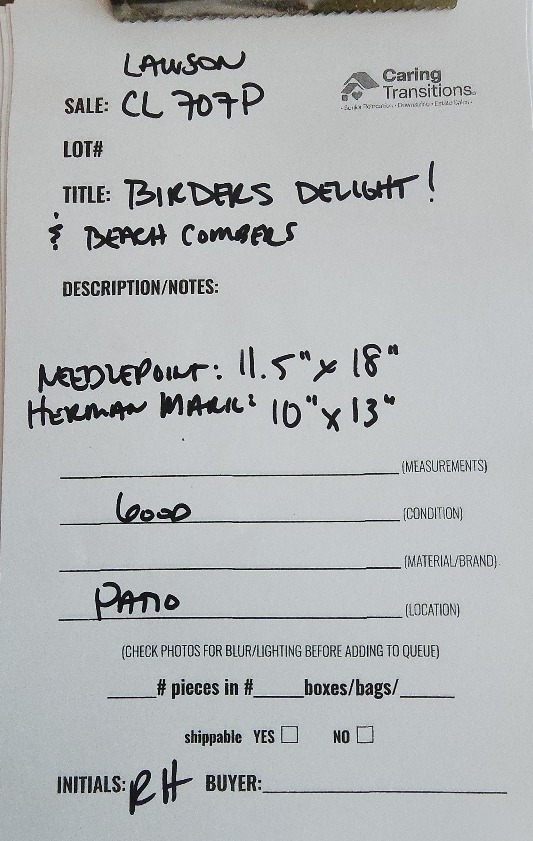 LAWSON
SALE: CL 707P
Caring
Transitions
LOT#
TITLE: BIRDERS DELIGHT!
& BEACH COMBERS
DESCRIPTION/NOTES:
NEEDLEPOINT: 11.5" x 18"
HERMAN MARK: 10" x 13"
(MEASUREMENTS)
GOOD (CONDITION)
(MATERIAL/BRAND)
PATIO (LOCATION)
(CHECK PHOTOS FOR BLUR/LIGHTING BEFORE ADDING TO QUEUE)
____# pieces in #____boxes/bags/____
shippable YES ☐ NO ☐
INITIALS: RH BUYER: